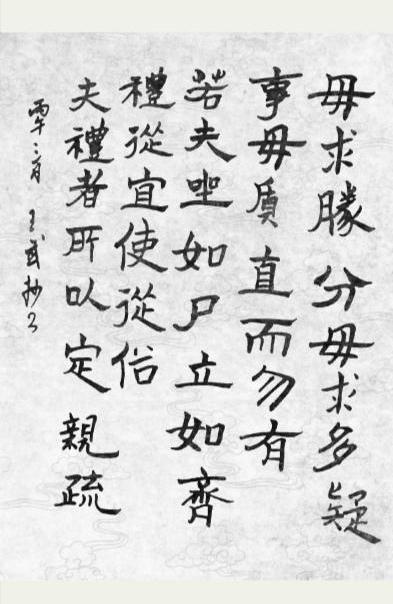 毋求勝分毋求多疑
事毋質直而勿有
若夫坐如尸立如齊
禮從宜使從俗
夫禮者所以定親疏
二月 王武抄